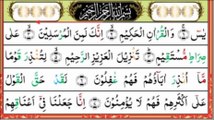 بِسْمِ اللهِ الرَّحْمٰنِ الرَّحِيْمِ
يٰسٓ ۚ وَالْقُرْاٰنِ الْحَكِيْمِ ۙ اِنَّكَ لَمِنَ الْمُرْسَلِيْنَ ۙ عَلٰى
صِرَاطٍ مُّسْتَقِيْمٍ ؕ تَنْزِيْلَ الْعَزِيْزِ الرَّحِيْمِ ۙ لِتُنْذِرَ قَوْمًا
مَّآ اُنْذِرَ اٰبَآؤُهُمْ فَهُمْ غٰفِلُوْنَ لَقَدْ حَقَّ الْقَوْلُ
عَلٰٓى اَكْثَرِهِمْ فَهُمْ لَا يُؤْمِنُوْنَ اِنَّا جَعَلْنَا فِيْٓ اَعْنَاقِهِمْ